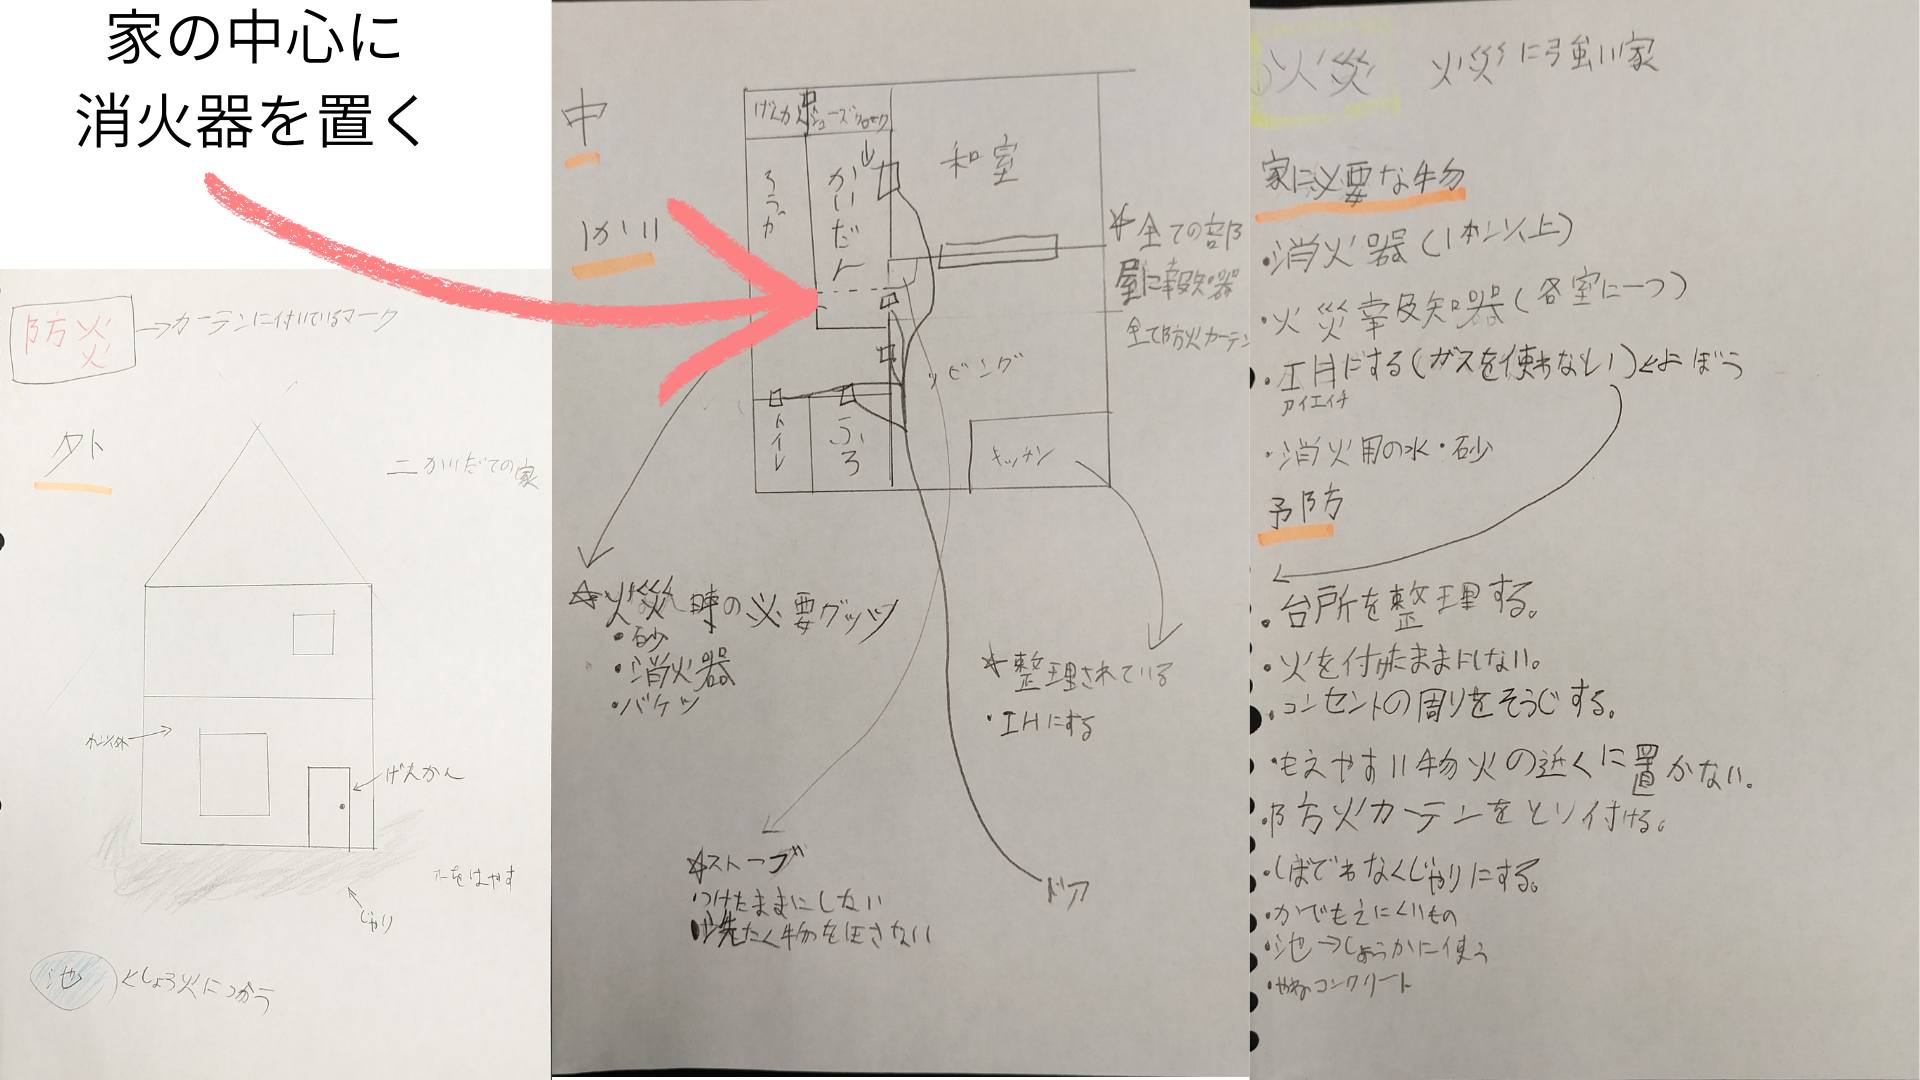 家の中心に
消火器を置く
防火
→カーテンに付いているマーク
外
二かいだての家
げんかん
をはやす
じゃり
池
←しょう火につかう
中
1かい
げんかん
シューズクローク
ろうか
かいだん
和室
リビング
トイレ
ふろ
キッチン
☆全ての部
屋に報知器
全て防火カーテン
☆火災時の必要グッツ
・砂
・消火器
・バケツ
☆整理されている
・IHにする
☆ストーブ
つけたままにしない
洗たく物を干さない
ドア
火災
火災に強い家
家に必要な物
・消火器(1本以上)
・火災報知器(各室に一つ)
・IHにする(ガスを使わない)←よぼう
アイエイチ
・消火用の水・砂
予防
・台所を整理する。
・火を付けたままにしない。
・コンセントの周りをそうじする。
・もえやすい物火の近くに置かない。
・防火カーテンをとり付ける。
・しばでわなくじゃりにする。
・かでもえにくいもの
・池→しょうかに使う
・やねコンクリート